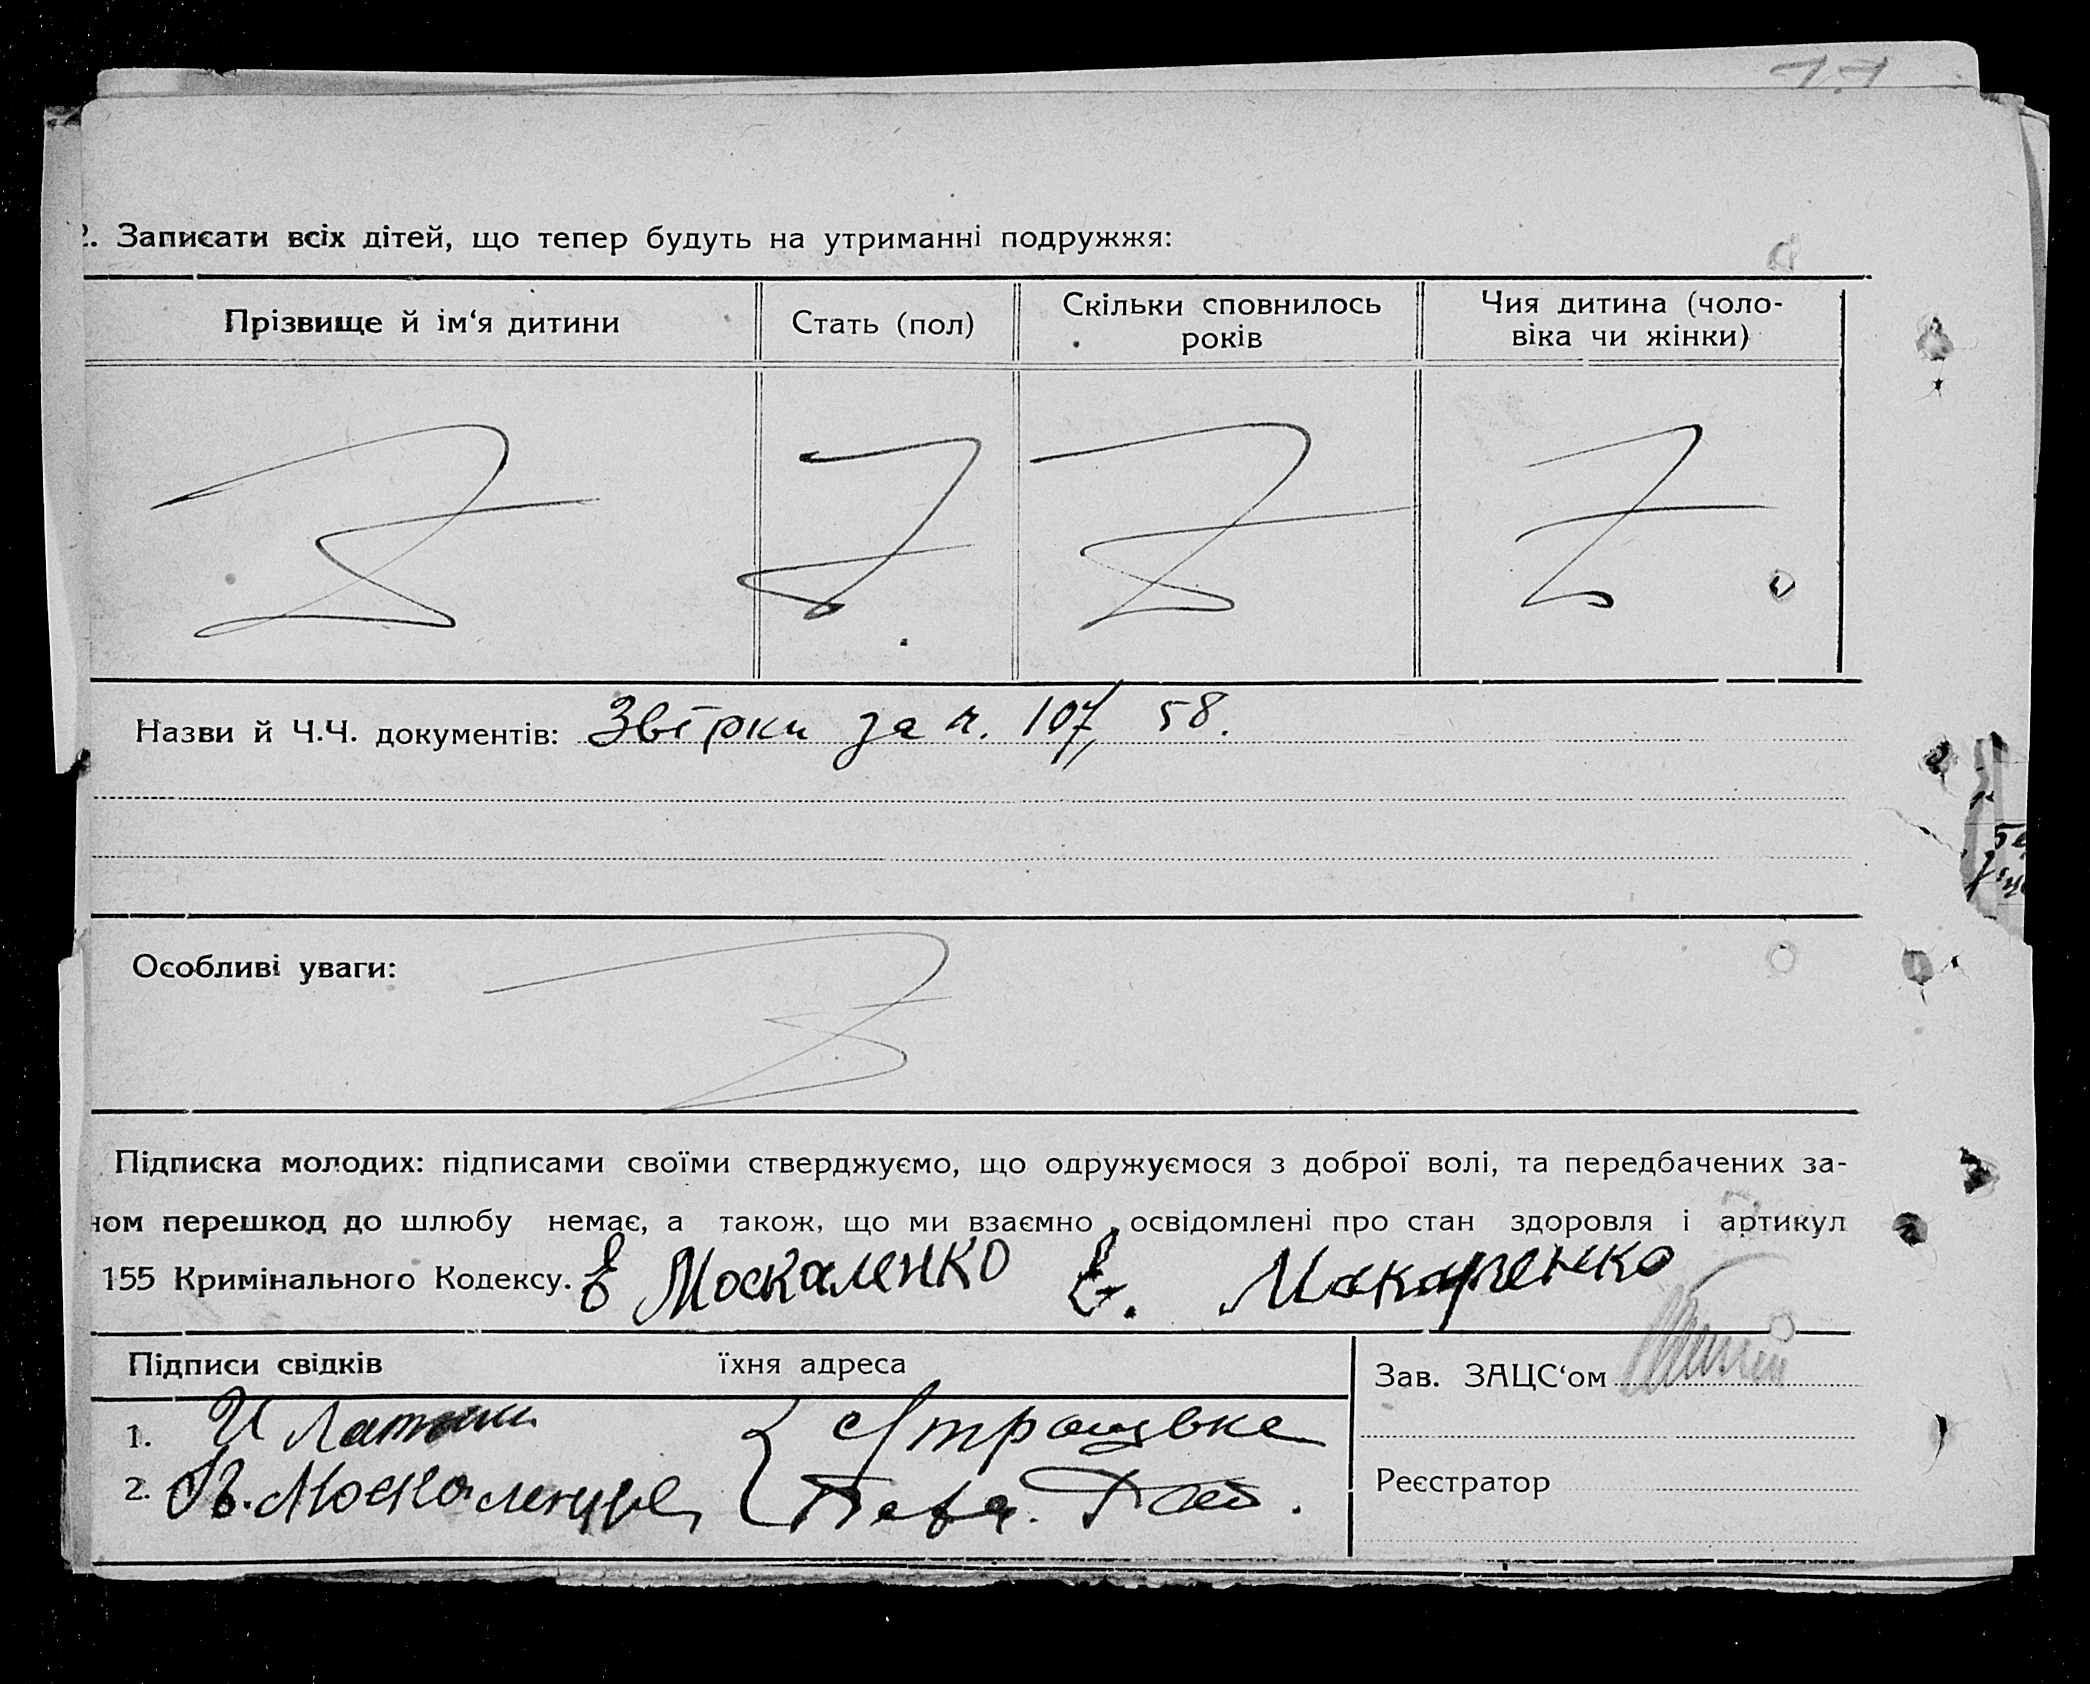 2. Записати всіх дітей, що тепер будуть на утриманні подружжя:
Прізвище й ім‘я дитини
Стать (пол)
Скільки сповнилось
років
Чия дитина (чоло-
віка чи жінки)
Назви й Ч.Ч. документів: Звірки за ч. 107, 58.
Особливі уваги:
Підписка молодих: підписами своїми стверджуємо, що одружуємося з доброї волі, та передбачених за-
ном перешкод до шлюбу немає, а також, що ми взаємно освідомлені про стан здоровля і артикул
155 Кримінального Кодексу. Е Москаленко Е. Макаренко
Підписи свідків
їхня адреса
Зав. ЗАЦС‘ом
1. И
2. Москаленко
Реєстратор